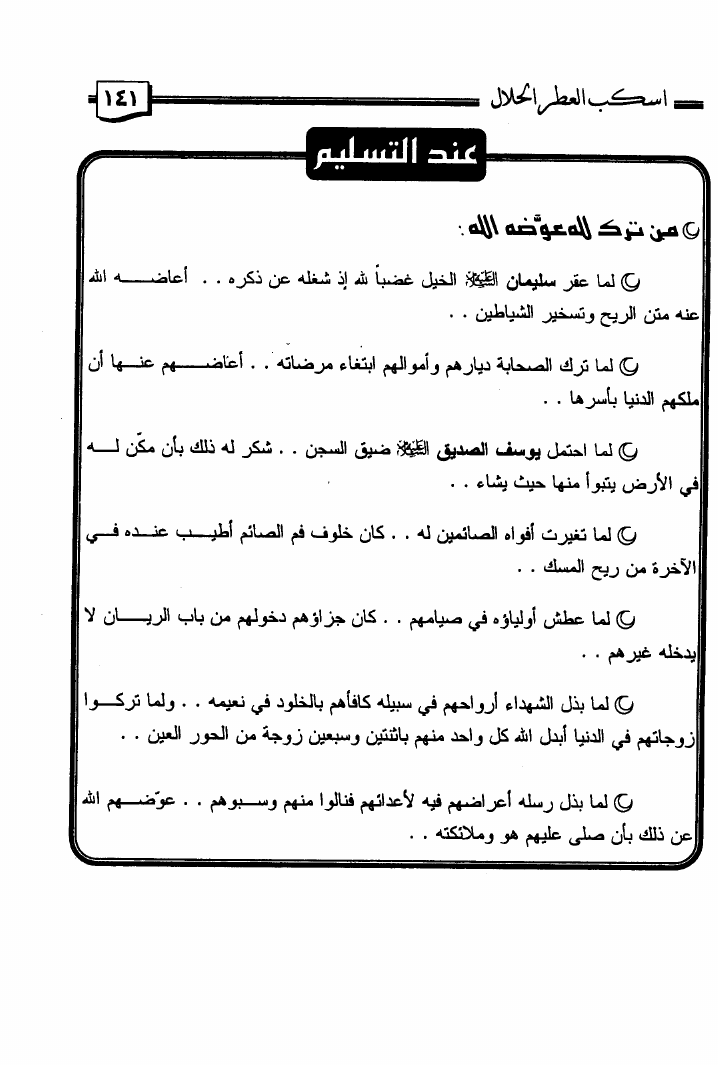 اسكب العطر الحلال
١٤١
عند التسليم
من ترك لله عوَّضه الله :
لما عقر سليمان عليه السلام الخيل غضباً لله إذ شغله عن ذكره . . أعاضه الله
عنه متن الريح وتسخير الشياطين . .
لما ترك الصحابة ديارهم وأموالهم ابتغاء مرضاته . . أعاضهم عنها أن
ملكهم الدنيا بأسرها . .
لما احتمل يوسف الصديق عليه السلام ضيق السجن . . شكر له ذلك بأن مكّن له
في الأرض يتبوأ منها حيث يشاء . .
لما تغيرت أفواه الصائمين له . . كان خلوف فم الصائم أطيب عنده في
الآخرة من ريح المسك . .
لما عطش أولياؤه في صيامهم . . كان جزاؤهم دخولهم من باب الريان لا
يدخله غيرهم . .
لما بذل الشهداء أرواحهم في سبيله كافأهم بالخلود في نعيمه . . ولما تركوا
زوجاتهم في الدنيا أبدل الله كل واحد منهم باثنتين وسبعين زوجة من الحور العين . .
لما بذل رسله أعراضهم فيه لأعدائهم فنالوا منهم وسبوهم . . عوّضهم الله
عن ذلك بأن صلى عليهم هو وملائكته . .